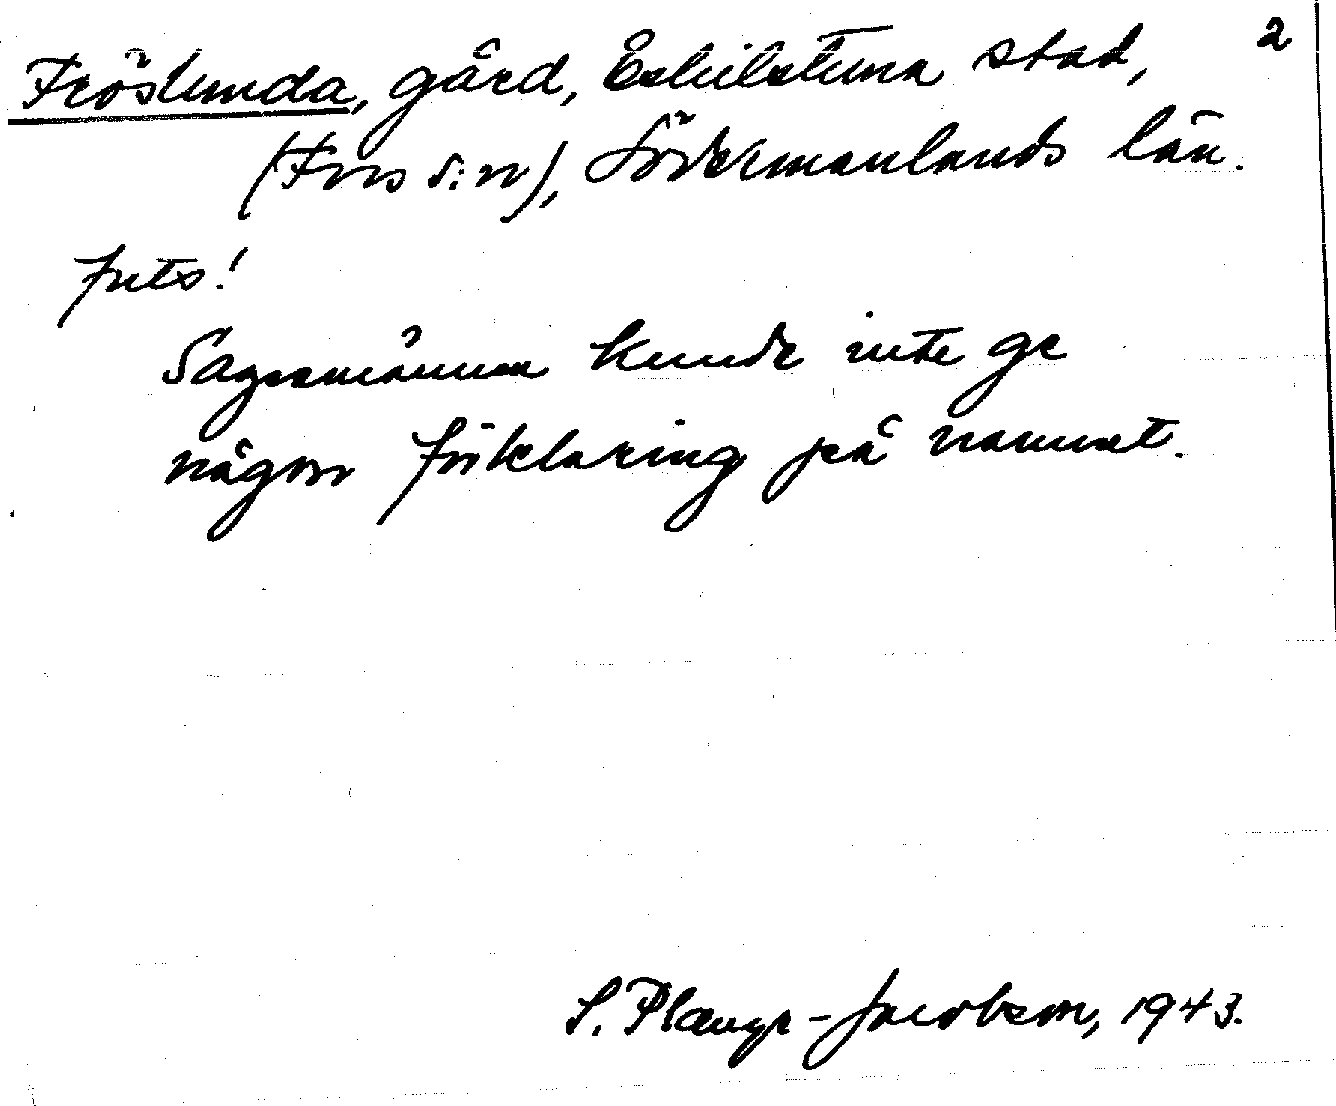 2
Fröslunda, gård, Eskilstuna stad,
(Fors s:n), Södermanlands län.
forts!
Sagesmännen kunde inte ge
någon förklaring på namnet.
S. Plænge-Jacobson, 1943.